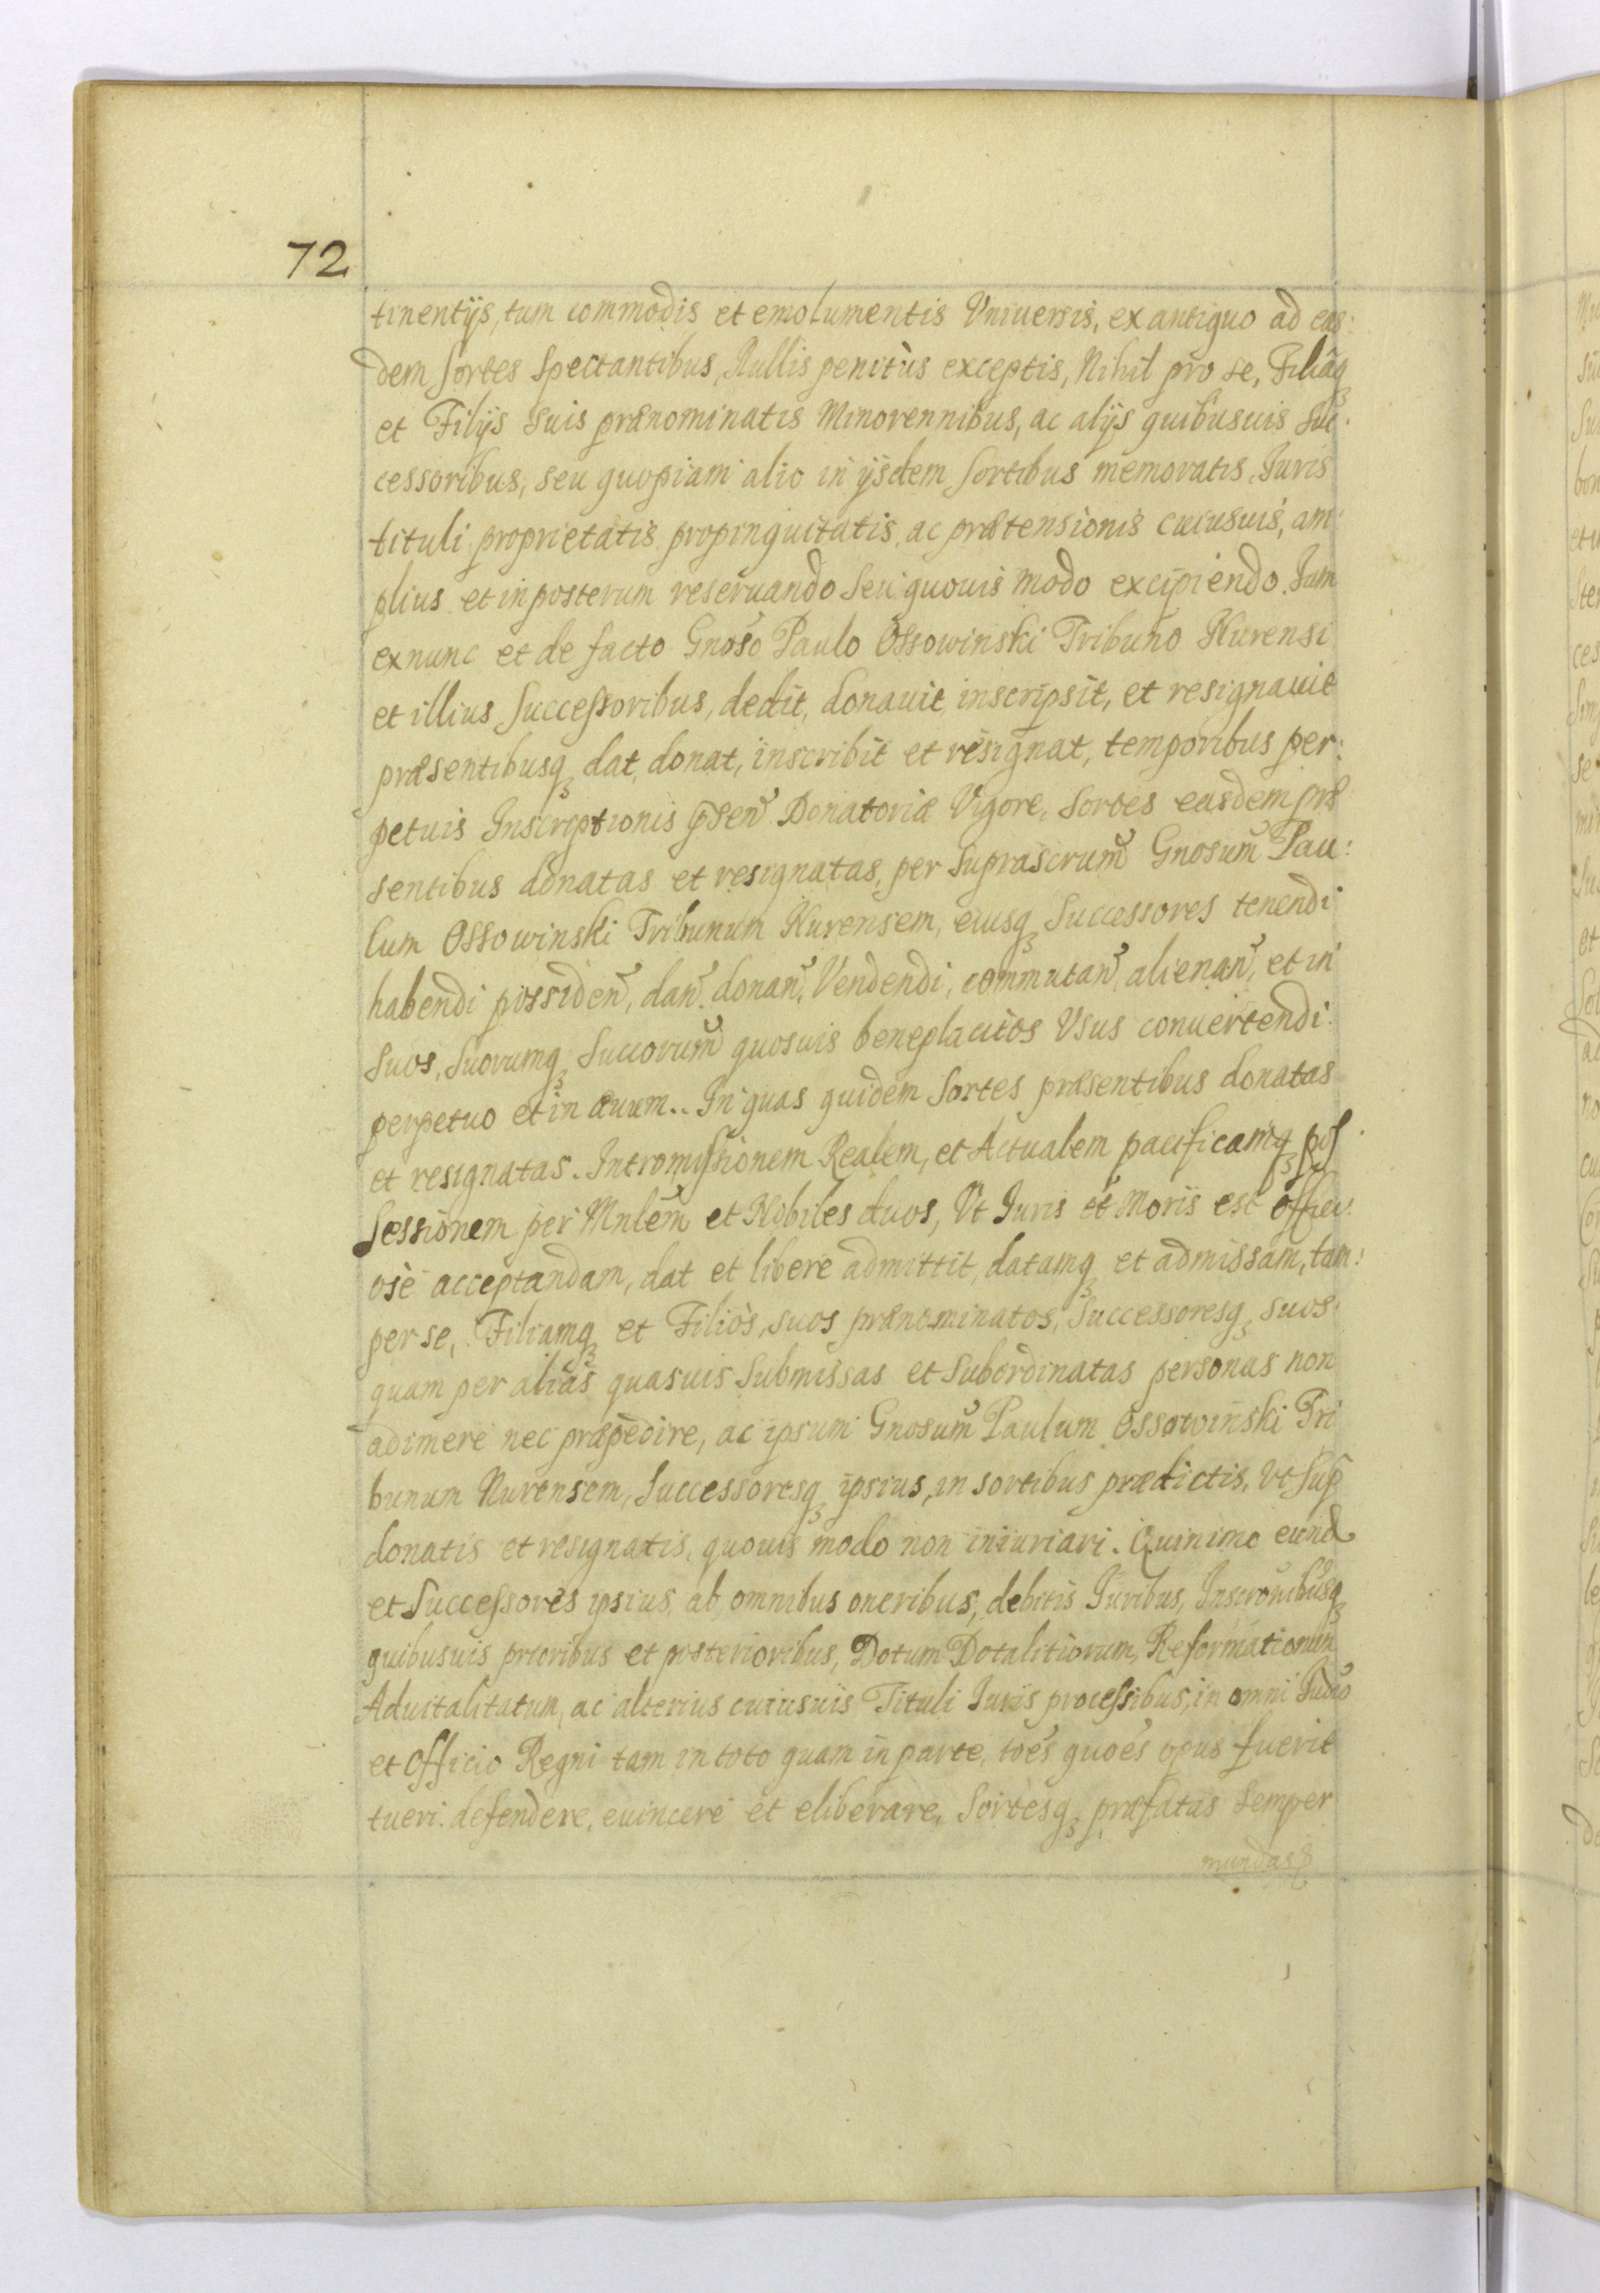 72
tinentijs, tum commodis et emolumentis Vniuersis, ex antiquo ad eas:
dem sortes spectantibus, Nullis penitùs exceptis, Nihil pro se, Filiaq̃
et Filijs suis prænominatis Minorennibus, ac alijs quibusuis suc:
cessoribus, seu quopiam alio in ijsdem sortibus memoratis, Iuris
tituli proprietatis propinquitatis, ac prætensionis cuiusuis, am:
plius et in posterum reseruando seu quouis modo excipiendo. Iam
exnunc et de facto Gnoso Paulo Ossowinski Tribuno Nurensi
et illius successoribus, dedit, donauit inscripsit, et resignauit
præsentibusq, dat donat, inscribit et resignat, temporibus per:
petuis Inscriptionis p̃sen Donatoriæ Vigore, sortes easdem præ
sentibus donatas et resignatas, per suprascrum Gnosum Pau:
lum Ossowinski Tribunum Nurensem, eiusq successores tenendi
habendi possiden, dan, donan, Vendendi, commutan, alienan, et in
suos, suorumq succorum quosuis beneplacitos Vsus conuertendi
perpetuo et in æuum.. In quas quidem sortes præsentibus donatas
et resignatas. Intromissionem Realem, et Actualem pacificamq pos
sessionem per Mnlem et Nobiles duos, Vt Iuris et Moris est offici:
osè acceptandam, dat et liberè admittit, datamq et admissam, tam:
per se, Filiamq et Filiòs, suos prænominatos, successoresq suos
quam per aliàs quasuis submissas et subordinatas personas non
adimere nec præpedire, ac ipsum Gnosum Paulum Ossowinski Tri
bunum Nurensem, successoresq ipsius, in sortibus prædictis, vt sup
donatis et resignatis, quouis modo non iniuriari. Quinimo eund
et successores ipsius ab omnibus oneribus, debitis Iuribus, Inscronibusq
quibusuis prioribus et posterioribus, Dotum Dotalitiorum, Reformationum
Aduitalitatum, ac alterius cuiusuis Tituli Iuris processibus, in omni Iudio
et Officio Regni tam in toto quam in parte, toes quoes opus fuerit
tueri. defendere, euincere et eliberare, sortesq præfatas semper
mundas